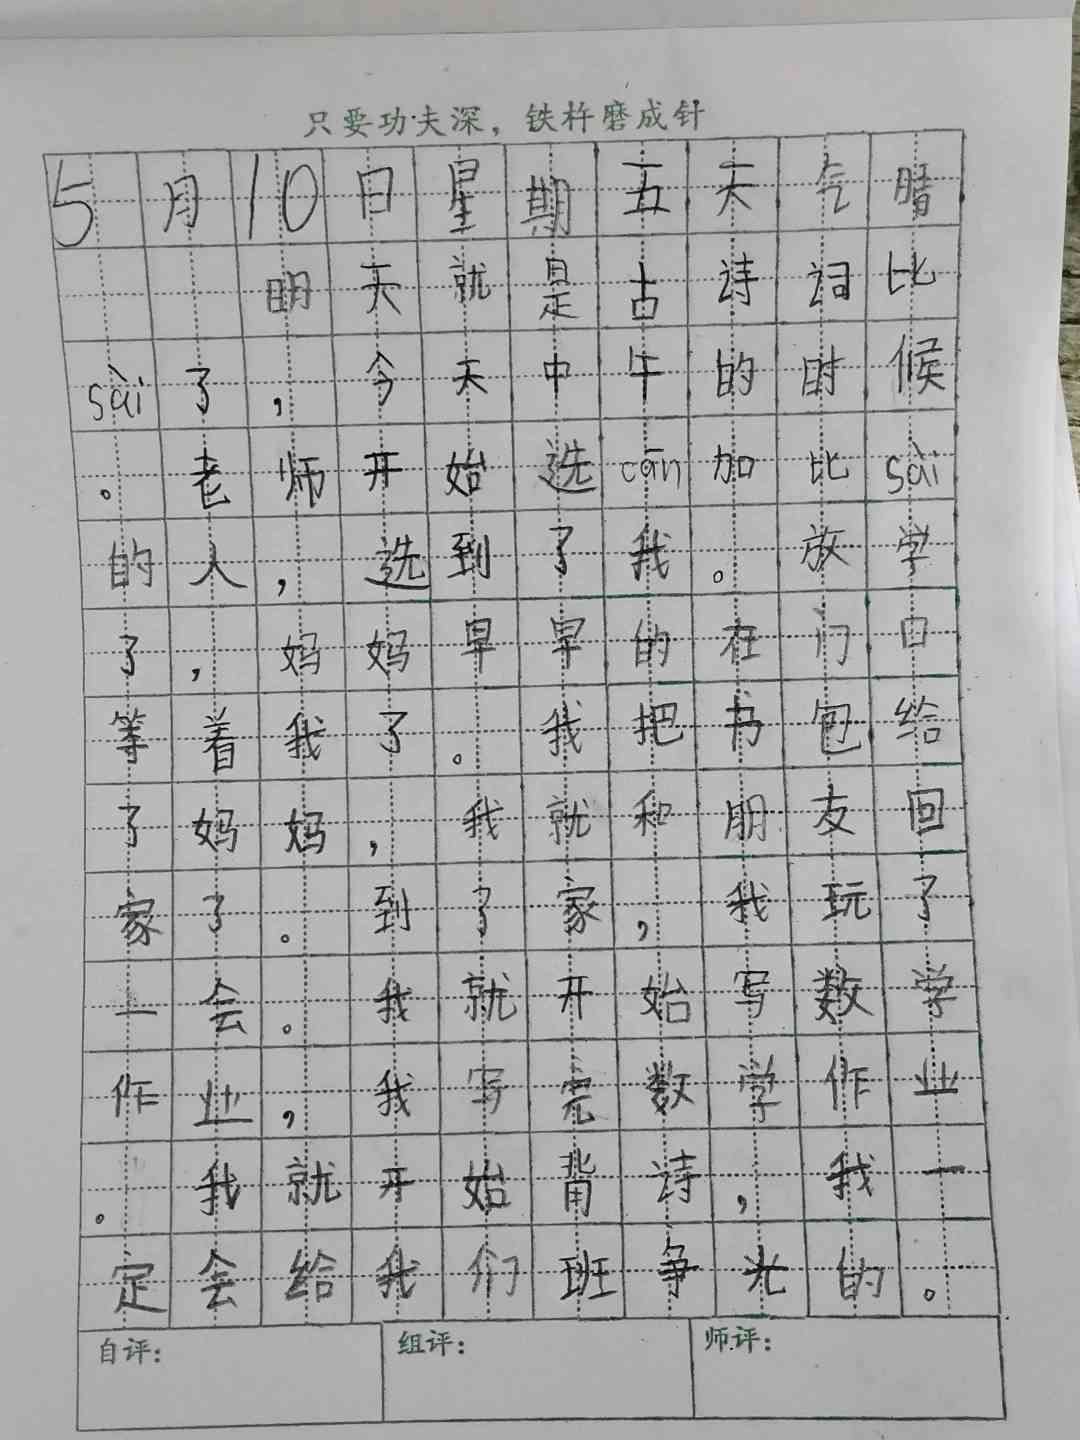 只要功夫深，铁杵磨成针
5月10日星期五天气晴
明天就是古诗词比
sài了，今天中午的时候
。老师开始选cān加比sài
的人，选到了我。放学
了，妈妈早早的在门口
等着我了。我把书包给
了妈妈，我就和朋友回
家了。到了家，我玩了
一会。我就开始写数学
作业，我写完数学作业
。我就开始背诗，我一
定会给我们班争光的。
自评： 组评： 师评：